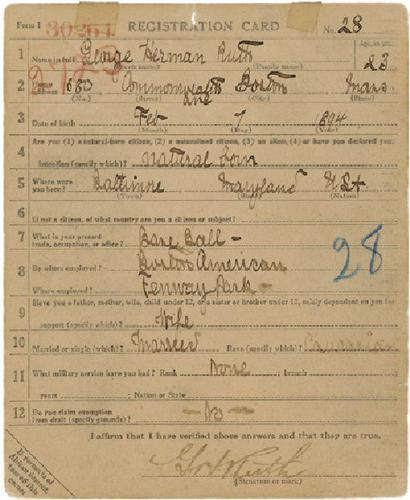 Form 1 30264 REGISTRATION CARD No. 28
1 Name in full George Herman Ruth Age, in yrs. 23
(Given name) (Family name)
2 Home address 680 Commonwealth Ave Boston Mass.
(No.) (Street) (City) (State)
3 Date of birth Feb 7 1894
(Month) (Day) (Year)
Are you (1) a natural-born citizen, (2) a naturalized citizen, (3) an alien, (4) or have you declared your
4 intention (specify which)? Natural born
5 Where were you born? Baltimore Maryland USA
(Town) (State) (Nation)
6 If not a citizen, of what country are you a citizen or subject?
7 What is your present trade, occupation, or office? Base Ball -
8 By whom employed? Boston American
Where employed? Fenway Park -
28
9 Have you a father, mother, wife, child under 12, or a sister or brother under 12, solely dependent on you for
support (specify which)? Wife
10 Married or single (which)? Married Race (specify which)? Caucasian
11 What military service have you had? Rank None ; branch
years ; Nation or State
12 Do you claim exemption from draft (specify grounds)? - No -
I affirm that I have verified above answers and that they are true.
Geo H Ruth
(Signature or mark)